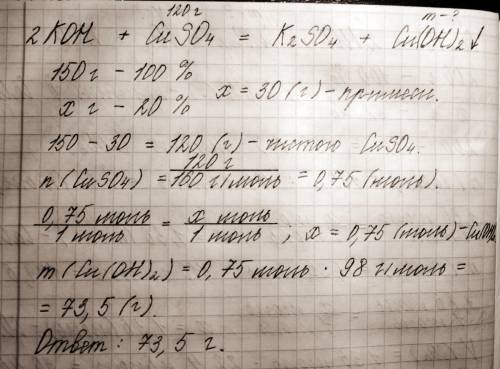 120 г m-?
2 KOH + CuSO4 = K2SO4 + Cu(OH)2↓
150 г - 100 %
x г - 20 % x = 30 (г) - примеси.
150 - 30 = 120 (г) - чистого CuSO4.
n (CuSO4) = 120 г / 160 г/моль = 0,75 (моль).
0,75 моль / 1 моль = x моль / 1 моль ; x = 0,75 (моль) - Cu(OH)2
m (Cu(OH)2) = 0,75 моль · 98 г/моль =
= 73,5 (г).
Ответ: 73,5 г.